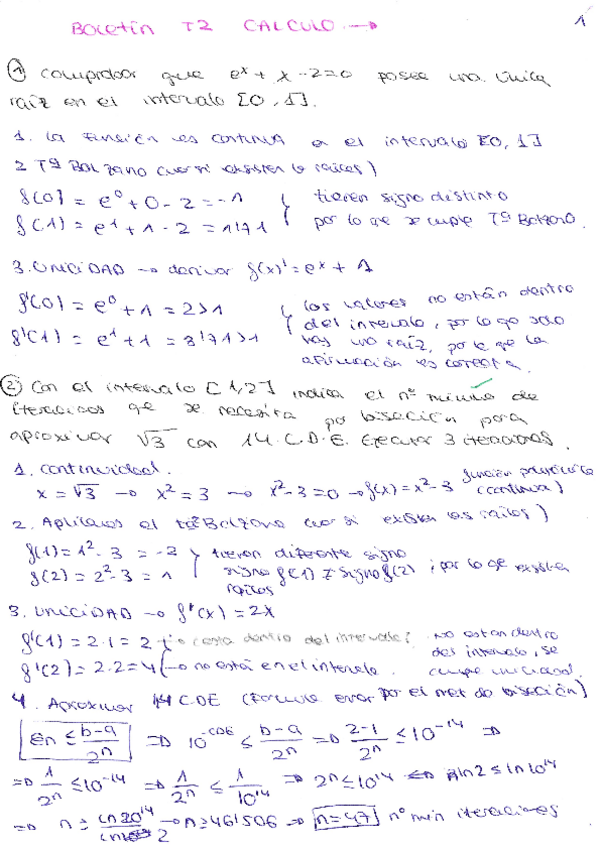 BOLETÍN T2 CALCULO → 1
① Comprobar que eˣ + x - 2 = 0 posee una única
raíz en el intervalo [0, 1].
1. La función es continua en el intervalo [0, 1]
2 Tª Bolzano (ver si existen las raíces)
f(0) = e⁰ + 0 - 2 = -1 } tienen signo distinto
f(1) = e¹ + 1 - 2 = 1'71 por lo que se cumple Tª Bolzano.
3. UNICIDAD → derivar f(x)' = eˣ + 1
f'(0) = e⁰ + 1 = 2 > 1 } los valores no están dentro
f'(1) = e¹ + 1 = 3'71 > 1 del intervalo, por lo que solo
hay una raíz, por lo que la
afirmación es correcta.
② Con el intervalo [1,2] indica el nº mínimo de
iteraciones que se necesita por bisección para
aproximar √3 con 14 C.D.E. Ejecutar 3 iteraciones.
1. Continuidad.
x = √3 → x² = 3 → x² - 3 = 0 → f(x) = x² - 3 función
(continua)
2. Aplicamos el tª Bolzano (ver si existen las raíces)
f(1) = 1² - 3 = -2 } tienen diferente signo
f(2) = 2² - 3 = 1 signo f(1) ≠ signo f(2) ; por lo que existen
raíces
3. UNICIDAD → f'(x) = 2x
f'(1) = 2·1 = 2 dentro del intervalo; no están dentro
f'(2) = 2·2 = 4 → no está en el intervalo. del intervalo, se
cumple unicidad.
4. Aproximar 14 CDE (Fórmula error por el met do bisección)
en ≤ b-a/2ⁿ ⇒ 10^-CDE ≤ b-a/2ⁿ ⇒ 2-1/2ⁿ ≤ 10⁻¹⁴ ⇒
⇒ 1/2ⁿ ≤ 10⁻¹⁴ ⇒ 1/2ⁿ ≤ 1/10¹⁴ ⇒ 2ⁿ ≤ 10¹⁴ ⇔ nln2 ≤ ln10¹⁴
⇒ n ≥ 2 → n ≥ 46'506 ⇒ n = 47 nº min iteraciones